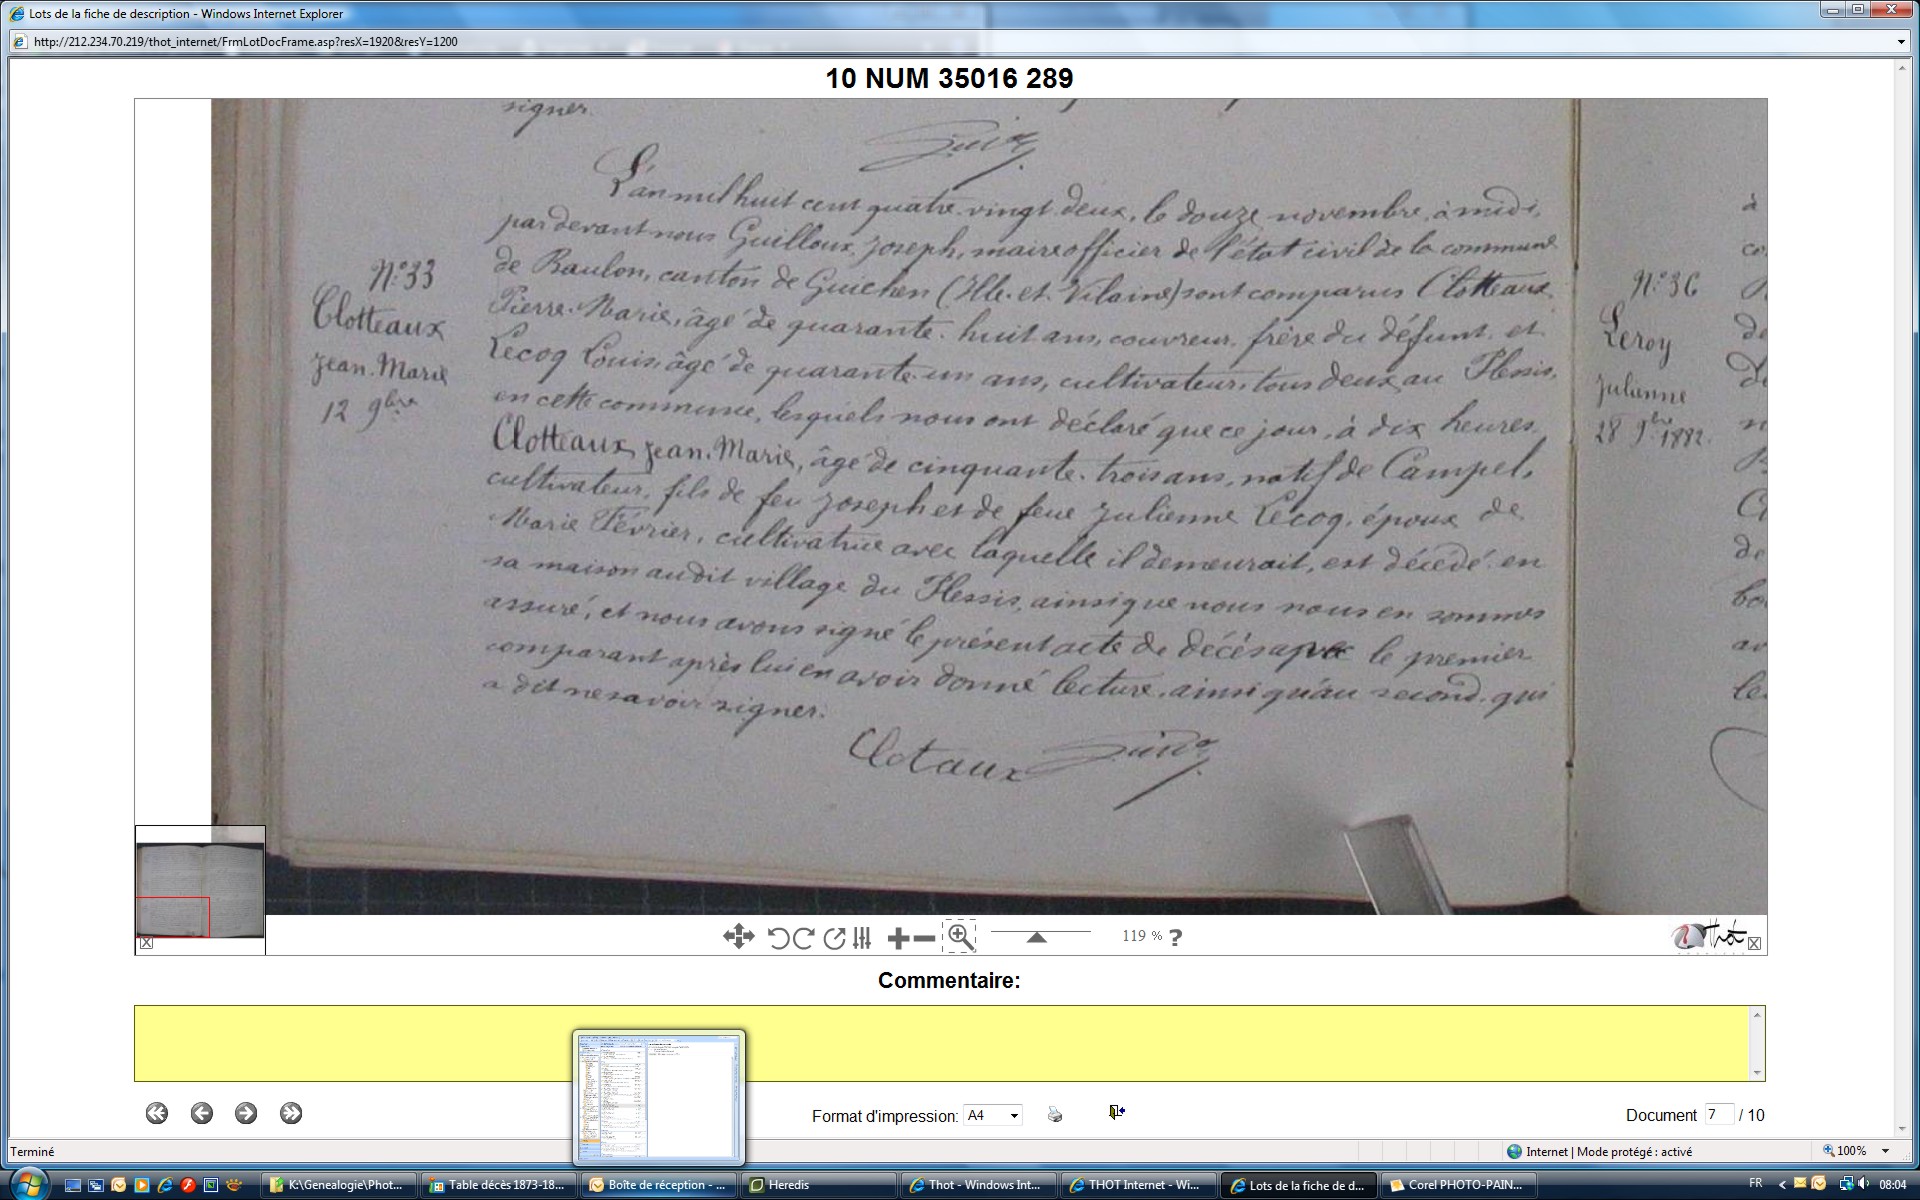 Lots de la fiche de description - Windows Internet Explorer
http://212.234.70.219/thot_internet/FrmLotDocFrame.asp?resX=1920&resY=1200
10 NUM 35016 289
signer.
L'an mil huit cent quatre-vingt deux, le douze novembre, à midi,
par devant nous Guilloux Joseph, maire officier de l'état civil de la commune
de Baulon, canton de Guichen (Ille-et-Vilaine) sont comparus Clotteaux
Pierre-Marie, âgé de quarante-huit ans, couvreur, frère du défunt, et
Lecoq Louis, âgé de quarante-un ans, cultivateur, tous deux au Plessis,
en cette commune, lesquels nous ont déclaré que ce jour, à dix heures,
Clotteaux Jean-Marie, âgé de cinquante-trois ans, natif de Campel,
cultivateur, fils de feu Joseph et de feue Julienne Lecoq, époux de
Marie Février, cultivatrice avec laquelle il demeurait, est décédé en
sa maison audit village du Plessis, ainsi que nous nous en sommes
assuré, et nous avons signé le présent acte de décès avec le premier
comparant après lui en avoir donné lecture, ainsi qu'au second, qui
a dit ne savoir signer.
Clotaux
N°33
Clotteaux
Jean-Marie
12 9bre
N°36
Leroy
Julienne
28 9bre 1882.
à
co
de
de
bo
av
le
119 % ?
Thot
Commentaire:
Format d'impression: A4
Document 7 / 10
Terminé
Internet | Mode protégé : activé
100%
K:\Genealogie\Phot...
Table décès 1873-18...
Boîte de réception - ...
Heredis
Thot - Windows Int...
THOT Internet - Wi...
Lots de la fiche de d...
Corel PHOTO-PAIN...
FR
08:04